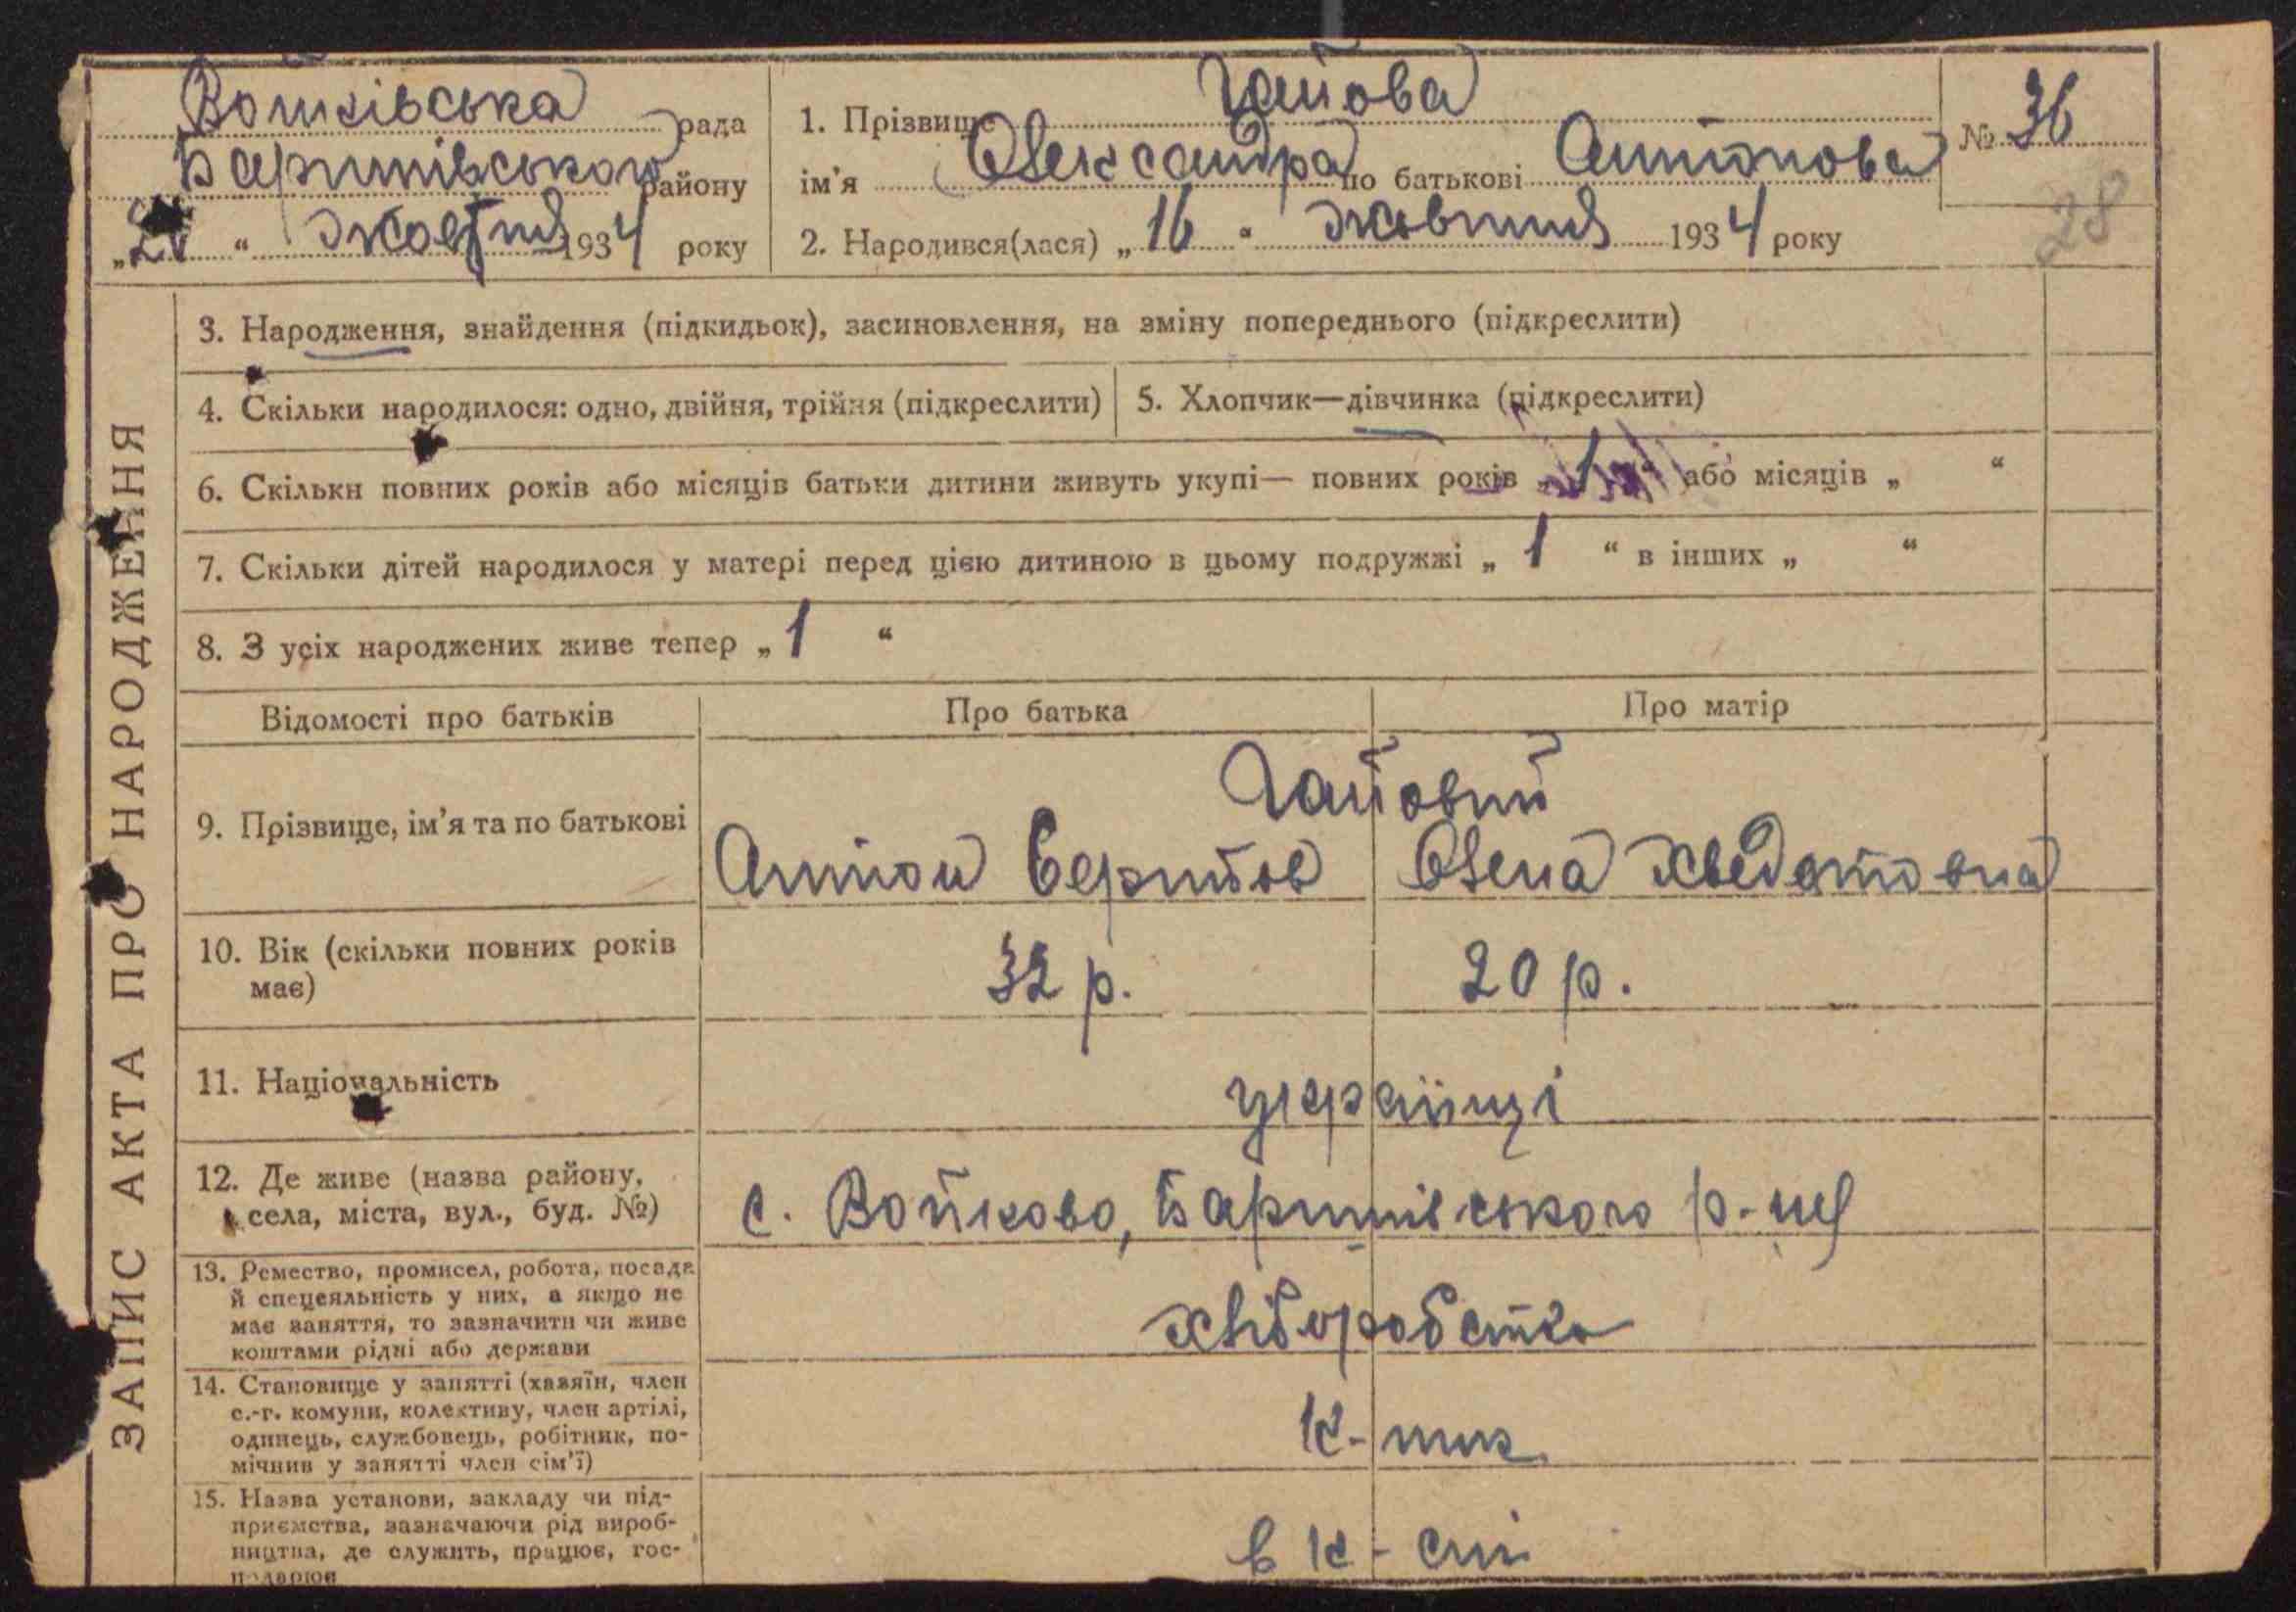 ЗАПИС АКТА ПРО НАРОДЖЕННЯ
Войківська рада
Баришівського району
„ “ жовтня 1934 року
1. Прізвище Гайова
ім’я Олександра по батькові Антонова
2. Народився(лася) „16“ жовтня 1934 року
№ 36
28
3. Народження, знайдення (підкидьок), засиновлення, на зміну попереднього (підкреслити)
4. Скільки народилося: одно, двійня, трійня (підкреслити)
5. Хлопчик—дівчинка (підкреслити)
6. Скільки повних років або місяців батьки дитини живуть укупі— повних років „ “ або місяців „ “
7. Скільки дітей народилося у матері перед цією дитиною в цьому подружжі „ 1 “ в інших „ “
8. З усіх народжених живе тепер „ 1 “
Відомості про батьків
Про батька
Про матір
9. Прізвище, ім’я та по батькові
Гайовий
Антон
Олена Хведотовна
10. Вік (скільки повних років
має)
32 р.
20 р.
11. Національність
українці
12. Де живе (назва району,
села, міста, вул., буд. №)
с. Войково, Баришівського р-ну
13. Ремество, промисел, робота, посада
й спецеяльність у них, а якщо не
має заняття, то зазначити чи живе
коштами рідні або держави
хліборобство
14. Становище у занятті (хазяїн, член
с.-г. комуни, колективу, член артілі,
одинець, службовець, робітник, по-
мічнив у занятті член сім’ї)
к-ник
15. Назва установи, закладу чи під-
приємства, зазначаючи рід вироб-
ництва, де служить, працює, гос-
подарює
в к-спі